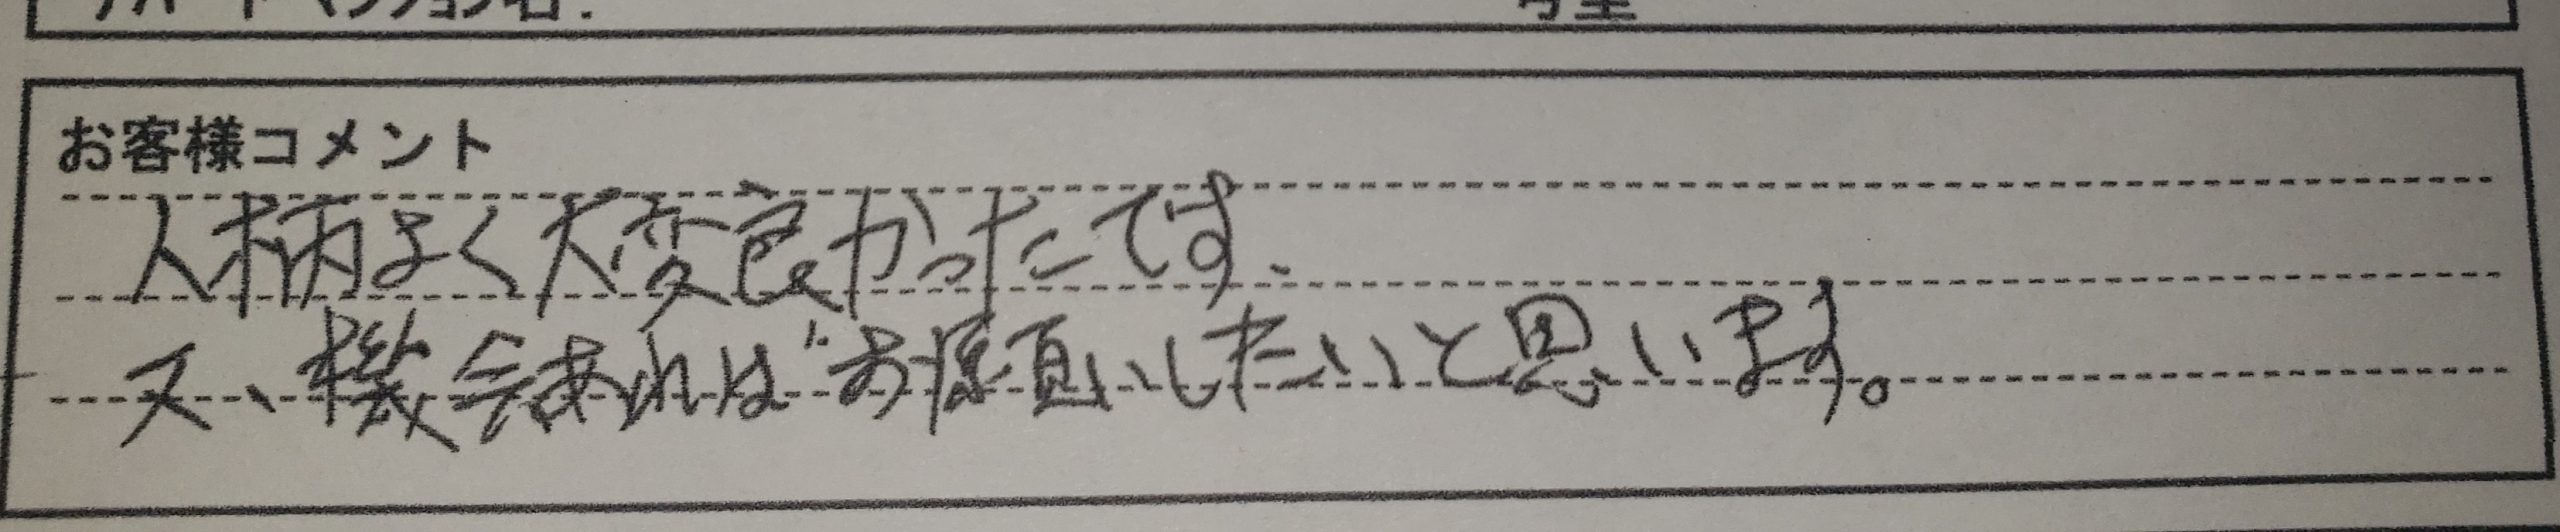 お客様コメント
人柄よく大変良かったです、
又、機会あればお願いしたいと思います。